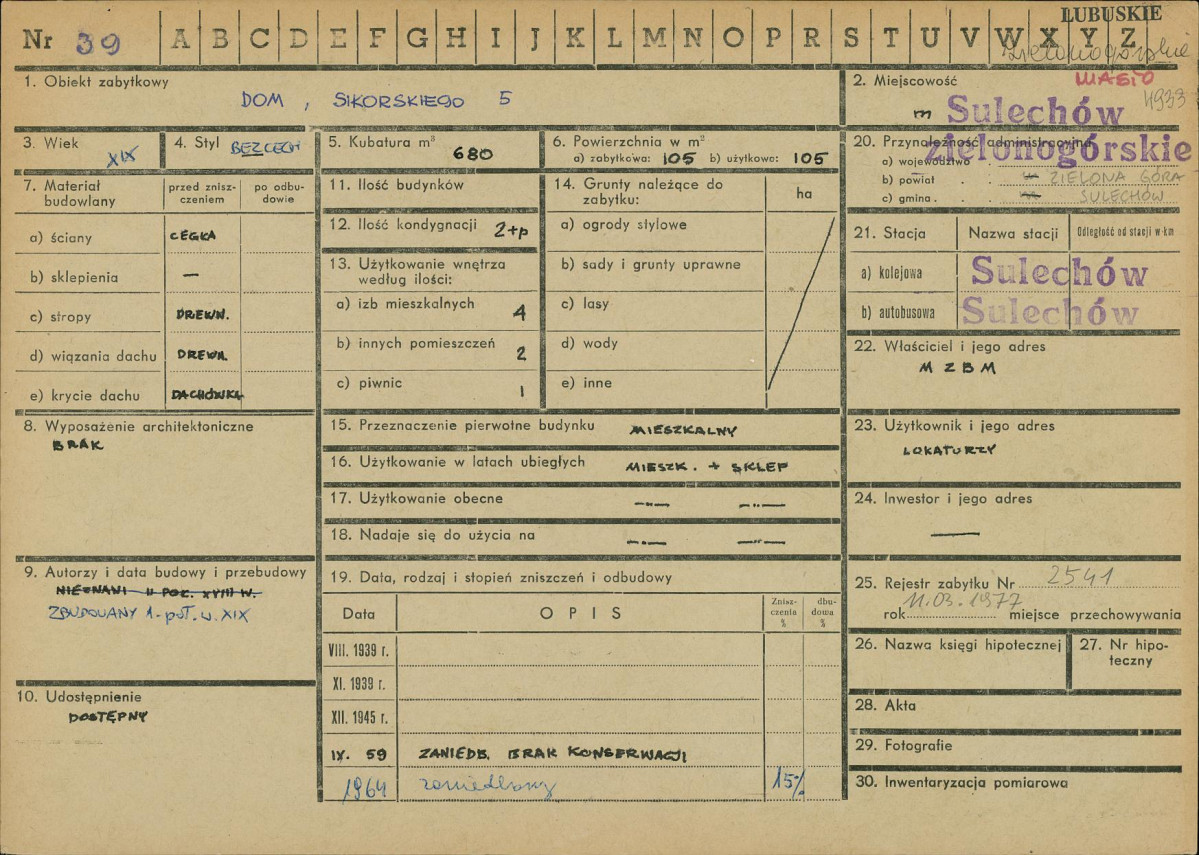 LUBUSKIE
Nr 39 A B C D E F G H I J K L M N O P R S T U V W X Y Z
zielonogórskie
1. Obiekt zabytkowy
DOM, SIKORSKIEGO 5
2. Miejscowość MIASTO
m Sulechów 4933
3. Wiek XIX
4. Styl BEZ CECH
5. Kubatura m³ 680
6. Powierzchnia w m²
a) zabytkowa: 105 b) użytkowa: 105
20. Przynależność administracyjna
zielonogórskie
a) województwo
b) powiat ZIELONA GÓRA
c) gmina SULECHÓW
7. Materiał budowlany
przed zniszczeniem
po odbudowie
a) ściany CEGŁA
b) sklepienia —
c) stropy DREWN.
d) wiązania dachu DREWN.
e) krycie dachu DACHÓWKA
11. Ilość budynków
12. Ilość kondygnacji 2+p
13. Użytkowanie wnętrza
według ilości:
a) izb mieszkalnych 4
b) innych pomieszczeń 2
c) piwnic 1
14. Grunty należące do
zabytku:
ha
a) ogrody stylowe
b) sady i grunty uprawne
c) lasy
d) wody
e) inne
21. Stacja Nazwa stacji Odległość od stacji w km
a) kolejowa Sulechów
b) autobusowa Sulechów
22. Właściciel i jego adres
M Z B M
8. Wyposażenie architektoniczne
BRAK
15. Przeznaczenie pierwotne budynku MIESZKALNY
16. Użytkowanie w latach ubiegłych MIESZK. + SKLEP
17. Użytkowanie obecne —„— —„—
18. Nadaje się do użycia na —„— —„—
23. Użytkownik i jego adres
LOKATORZY
24. Inwestor i jego adres
—
9. Autorzy i data budowy i przebudowy
NIEZNANI II POŁ. XVIII W.
ZBUDOWANY 1. poł. w. XIX
10. Udostępnienie
DOSTĘPNY
19. Data, rodzaj i stopień zniszczeń i odbudowy
Data OPIS Zniszczenia % dbudowa %
VIII. 1939 r.
XI. 1939 r.
XII. 1945 r.
IX. 59 ZANIEDB. BRAK KONSERWACJI
1964 zaniedbany 15%
25. Rejestr zabytku Nr 2541
11.03.1977
rok miejsce przechowywania
26. Nazwa księgi hipotecznej
27. Nr hipoteczny
28. Akta
29. Fotografie
30. Inwentaryzacja pomiarowa